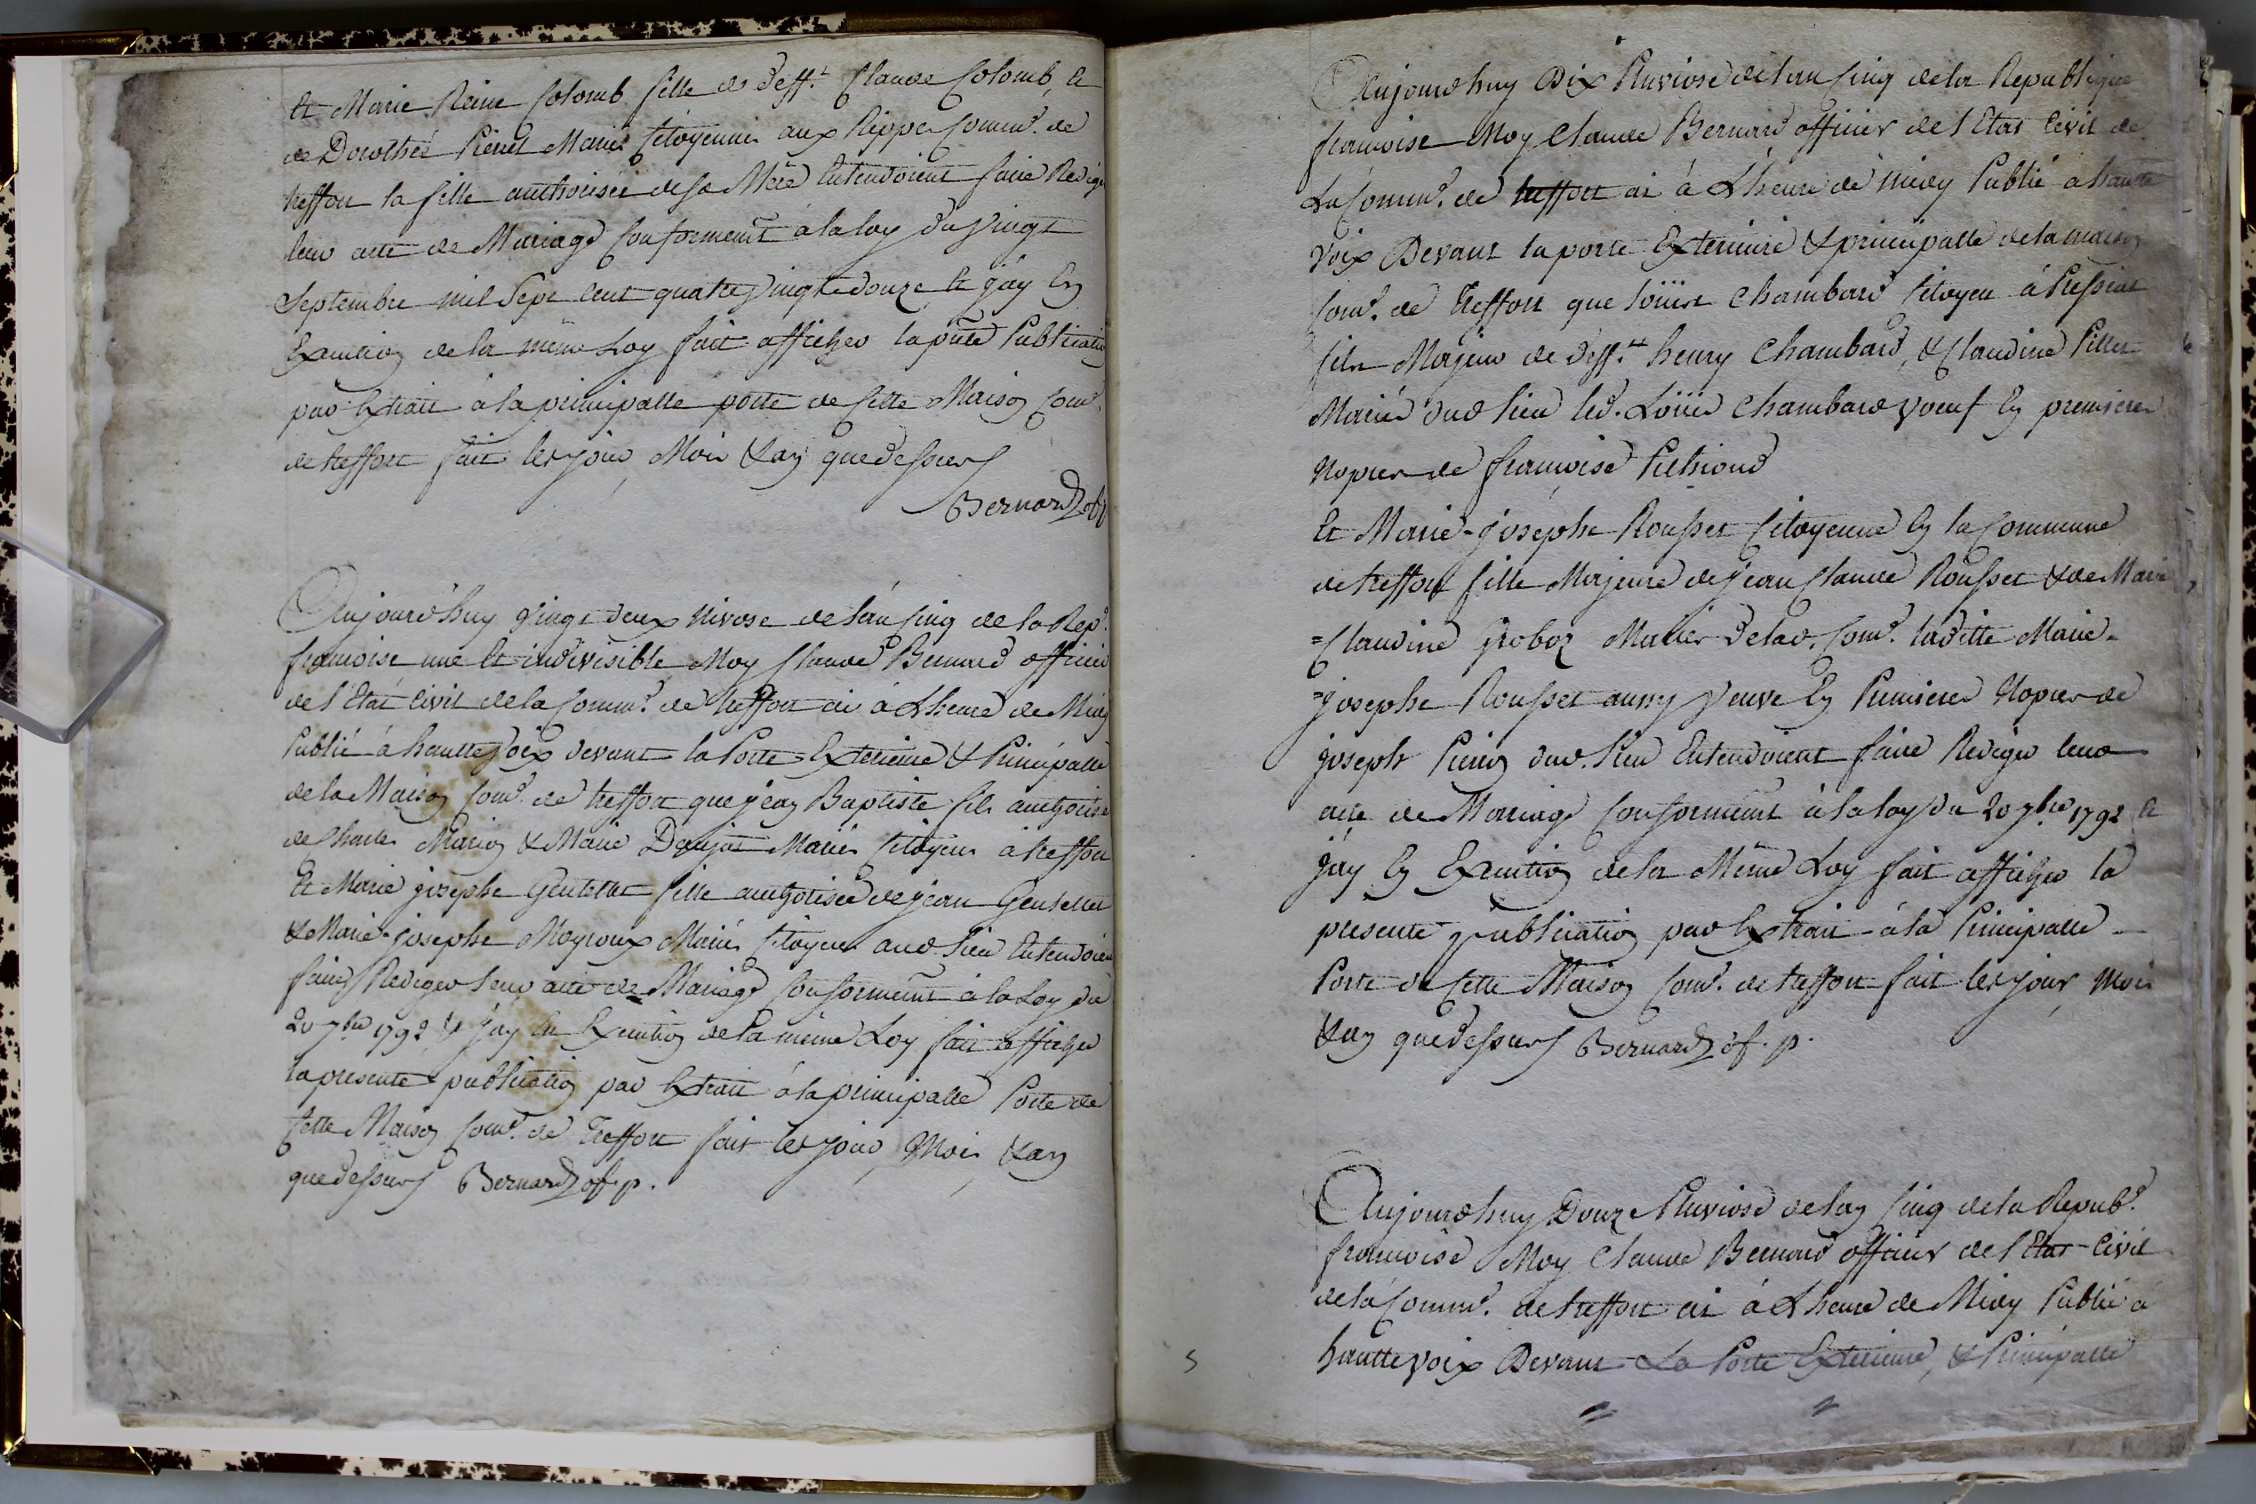 Et Marie Reine Colomb fille de deff.t Claude Colomb, et
de Dorothée Perret Mariés Citoyenne aux Rippes Comm.e de
treffort la fille authorisée de sa Mère Entendoient faire Rediger
leur acte de Mariage Conforment à la loy du Vingt
Septembre mil Sept Cent quatre Vingt douze, et j'ay En
Execution de la même Loy fait afficher la pnte Publication
par Extrait à la principalle porte de Cette Maison Com.e
de treffort fait les jour, Mois & an que dessus
Bernard of p
Aujourd'huy Vingt deux Nivose de l'an Cinq de la Rep.e
francoise une et indivisible Moy Claude Bernard officier
de l'Etat Civil de la Comm.e de treffort ai à L'heure de Midy
Publié à hautte Voix devant la Porte Exterieure & Principalle
de la Maison Com.e de treffort que jean Baptiste fils authorisé
de Charles Marion & Marie Daujat Mariés Citoyens à treffort
Et Marie josephe Gentelet fille authorisée de jean Gentelet
& Marie josephe Moyroux Mariés Citoyens aud. lieu Entendoient
faire Rediger leur acte de Mariage Conforment à la Loy du
20 7bre 1792 & j'ay En Execution de la même Loy fait afficher
la presente publication par Extrait à la principalle Porte de
Cette Maison Com.e de Treffort fait les jour, Mois, & an
que dessus Bernard of. p.
Aujourdhuy Dix Pluviose de l'an Cinq de la Republique
francoise Moy Claude Bernard officier de l'Etat Civil de
La Comm.e de treffort ai à L'heure de midy Publié a haute
Voix Devant la porte Exterieure & principalle de la maison
Com.e de Treffort que Louis Chambard Citoyen à Pressiat
fils Majeur de deff.tt henry Chambard, & Claudine Pillet
Mariés dud lieu led. Louis Chambard Voeuf En premieres
Nopces de francoise Puthiond
Et Marie-josephe Rousset Citoyenne En la Commune
de treffort fille Majeure de jean Claude Rousset & de Marie
=Claudine Groboz Mariés de lad. Com.e ladite Marie-
=josephe Rousset aussy Veuve En Premieres Nopces de
joseph Pieron dud. lieu Entendoient faire Rediger leur
acte de Mariage Conforment à la loy du 20 7bre 1792 et
j'ay En Execution de la Même Loy fait afficher la
presente publication par Extrait à la Principalle
Porte de Cette Maison Com.e de treffort fait les jour, Mois
& an que dessus Bernard of. p.
Aujourdhuy Douze Pluviose de l'an Cinq de la Repub.e
francoise Moy Claude Bernard officier de l'Etat Civil
de la Comm.e de treffort ai à L'heure de Midy Publié à
hautte Voix Devant La Porte Exterieure, & Principalle
5